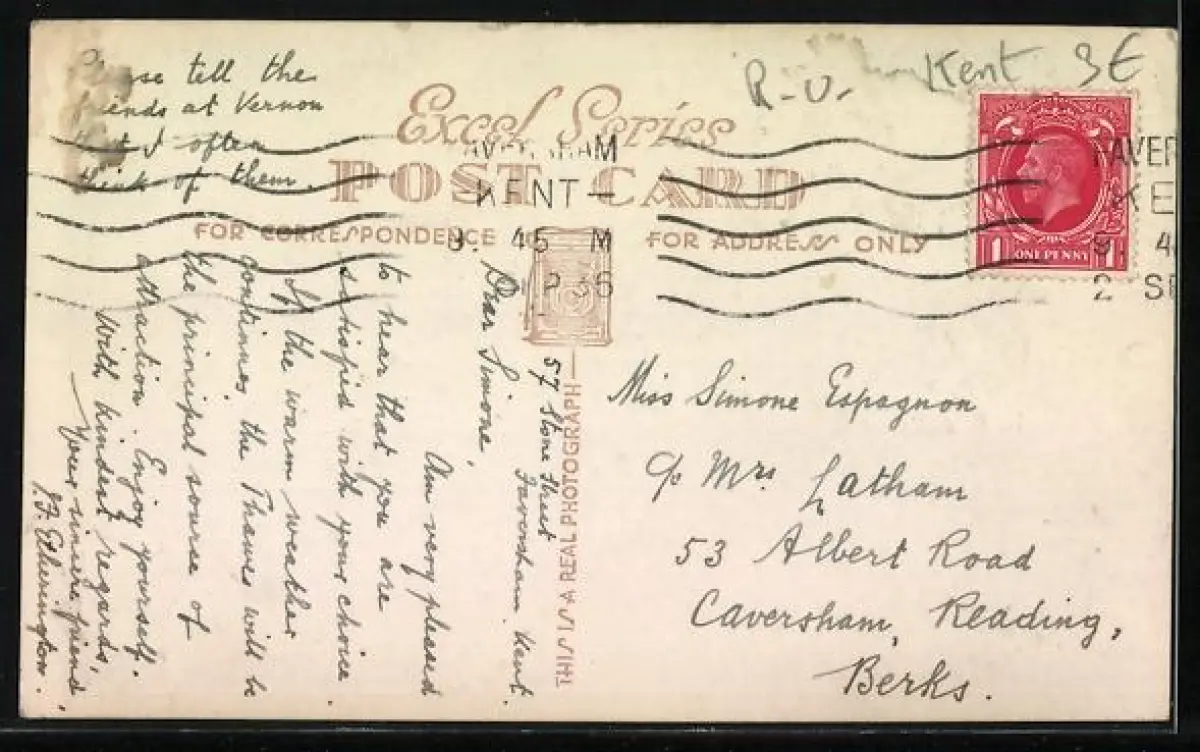 Please tell the
friends at Vernon
that I often
think of them.
R-U. Kent 3€
Excel Series
POST CARD
FOR CORRESPONDENCE FOR ADDRESS ONLY
FAVERSHAM
KENT
9. 45 M
2 SP 36
FAVER
KE
9 4
2 SE
1 ONE PENNY 1
THIS IS A REAL PHOTOGRAPH
57 Stone Street
Faversham. Kent.
Dear Simone,
Am very pleased
to hear that you are
satisfied with your choice.
If the warm weather
continues the Thames will be
the principal source of
attraction. Enjoy yourself.
With kindest regards,
Your sincere friend,
J. F. Etherington.
Miss Simone Espagnon
c/o Mrs Latham
53 Albert Road
Caversham, Reading,
Berks.